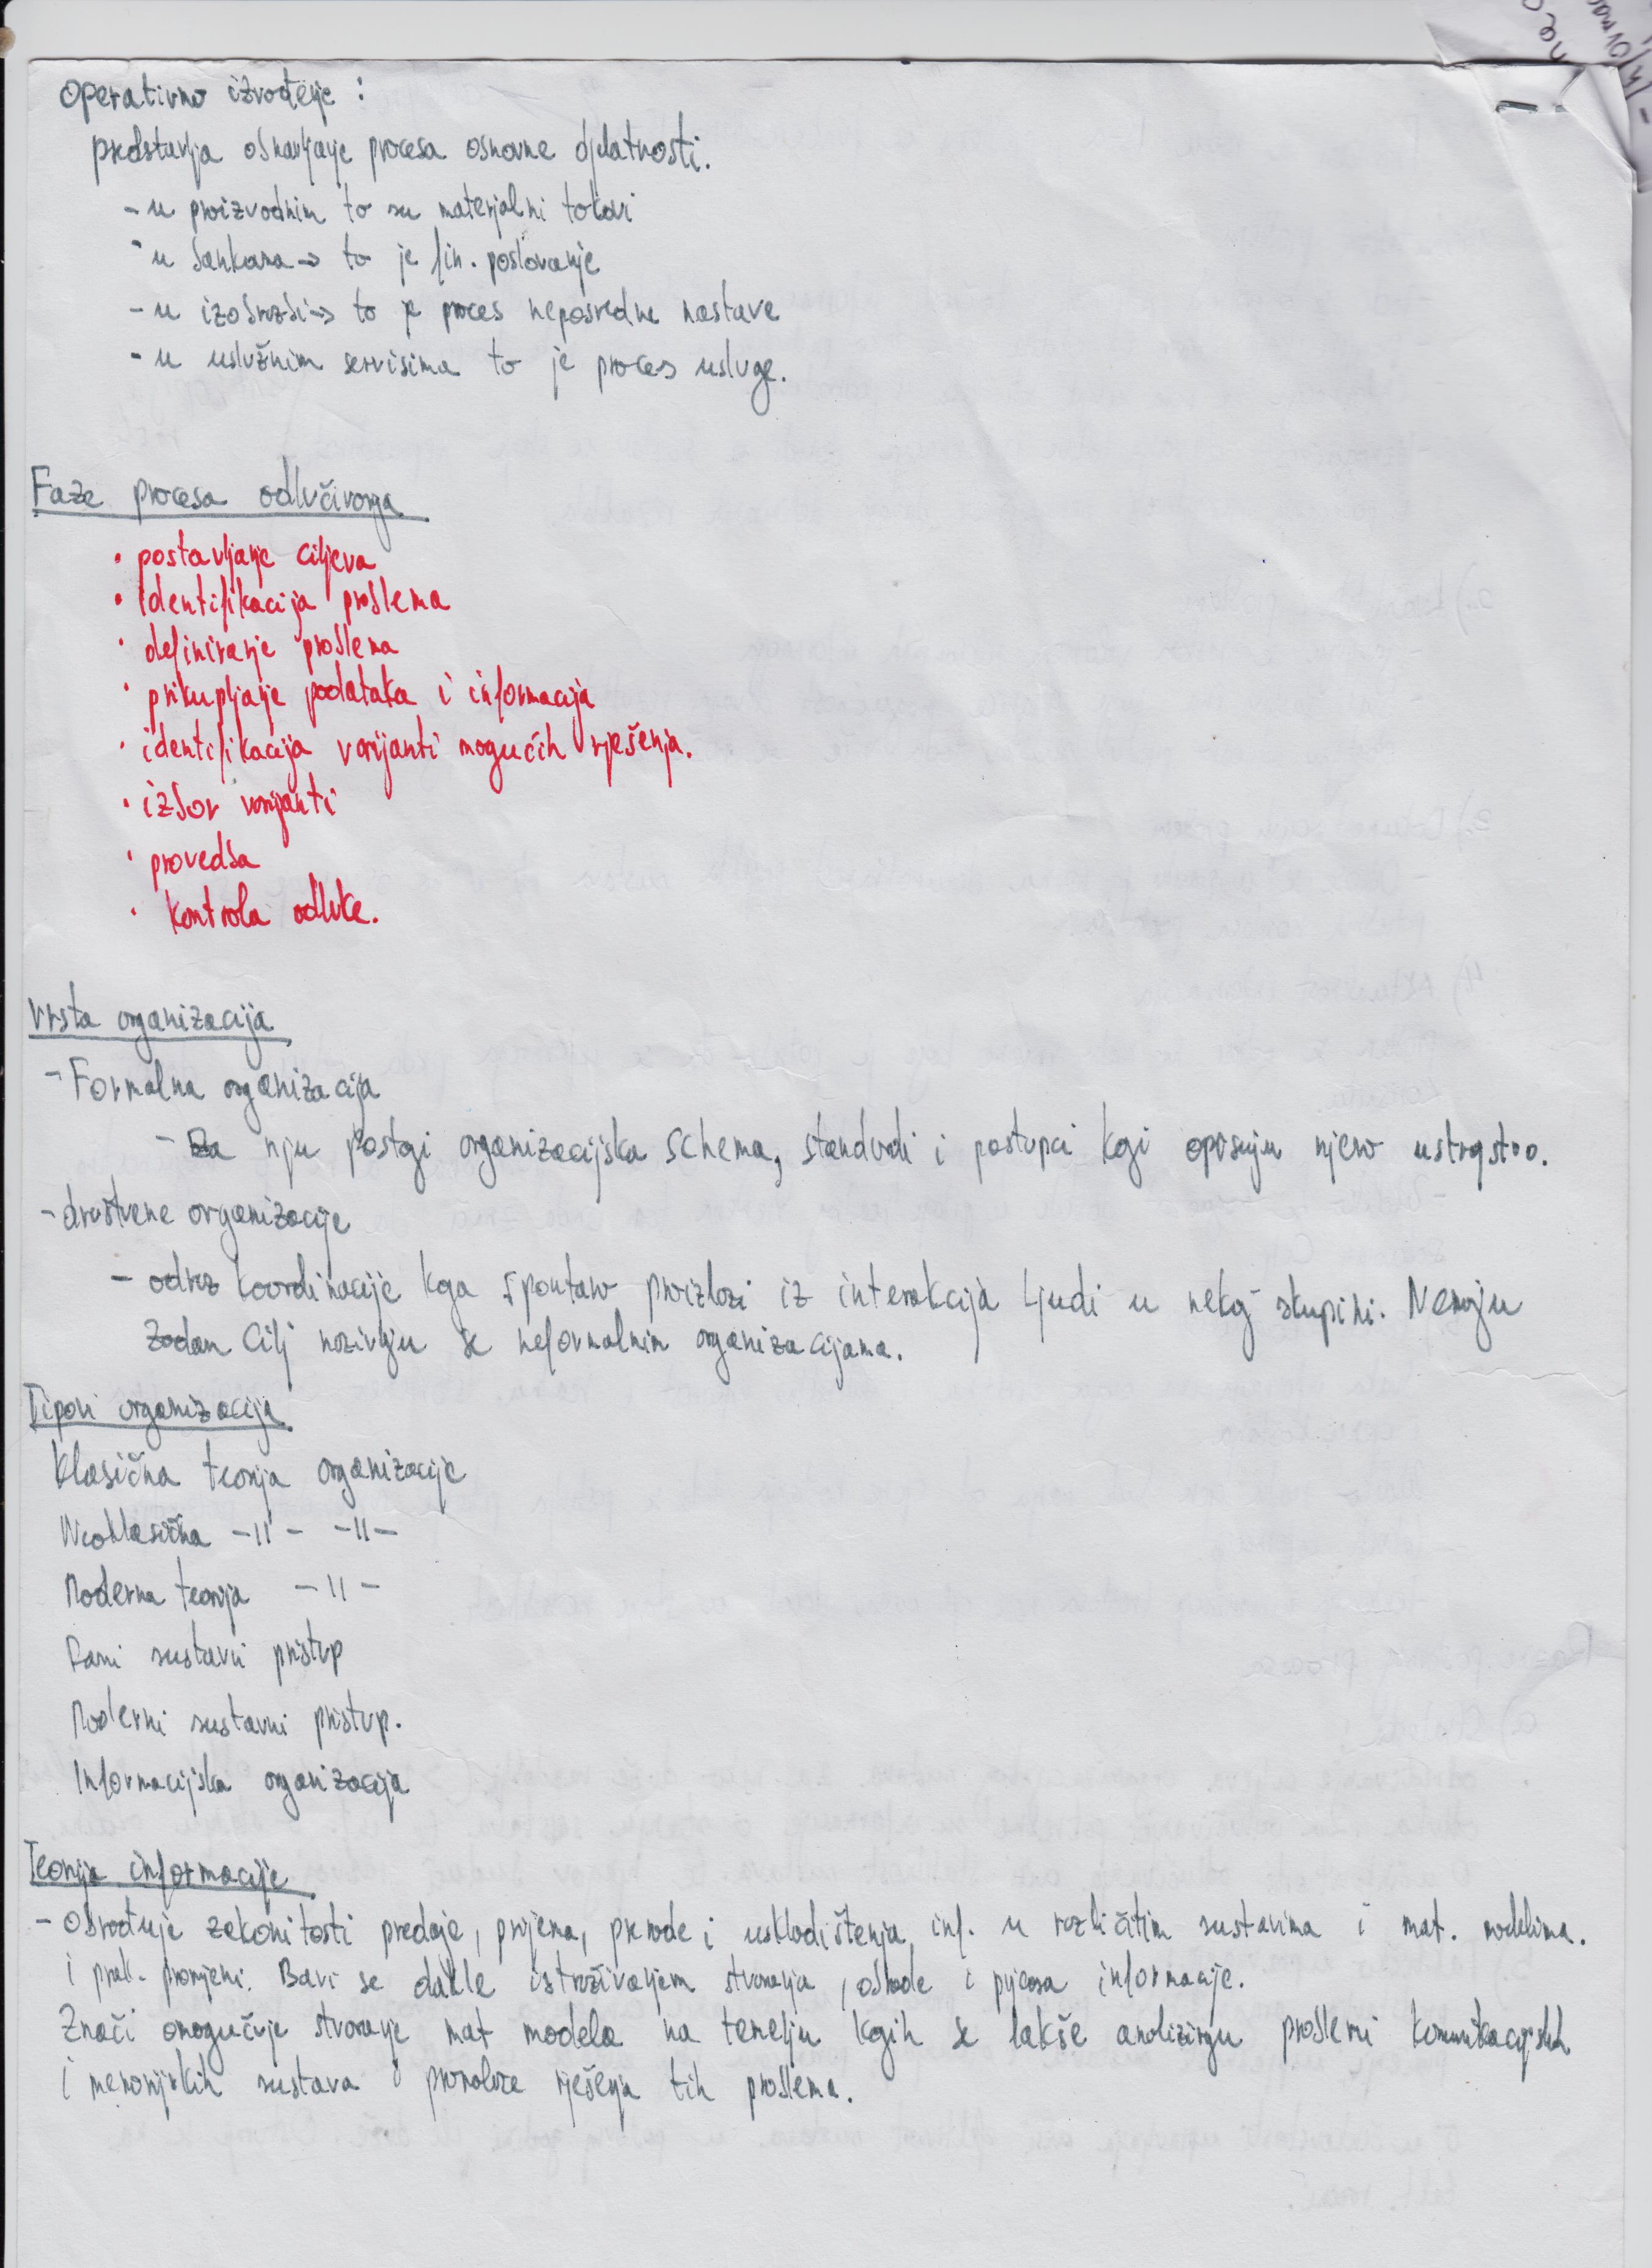 Operativno izvođenje :
predstavlja obnavljanje procesa osnovne djelatnosti.
- u proizvodnim to su materijalni tokovi
- u bankama → to je fin. poslovanje
- u izobrazbi → to je proces neposredne nastave
- u uslužnim servisima to je proces usluge.
Faze procesa odlučivanja
· postavljanje ciljeva
· identifikacija problema
· definiranje problema
· prikupljanje podataka i informacija
· identifikacija varijanti mogućih rješenja.
· izbor varijanti
· provedba
· kontrola odluke.
Vrsta organizacija
- Formalna organizacija
- Za nju postoji organizacijska schema, standardi i postupci koji opisuju njeno ustrojstvo.
- društvene organizacije
- odraz koordinacije koja spontano proizlazi iz interakcija ljudi u nekoj skupini. Nemaju
zadan cilj nazivaju se neformalnim organizacijama.
Tipovi organizacija
Klasična teorija organizacije
Neoklasična -11- -11-
Moderna teorija -11-
Rani sustavni pristup
Moderni sustavni pristup.
Informacijska organizacija
Teorija informacije
- Obrađuje zakonitosti predaje, prijema, prerade i uskladištenja inf. u različitim sustavima i mat. modelima.
i prak. promjeni. Bavi se dakle istraživanjem stvaranja, obrade i prijenosa informacije.
Znači omogućuje stvaranje mat modela na temelju kojih se lakše analiziraju problemi komunikacijskih
i memorijskih sustava i pronalaze rješenja tih problema.